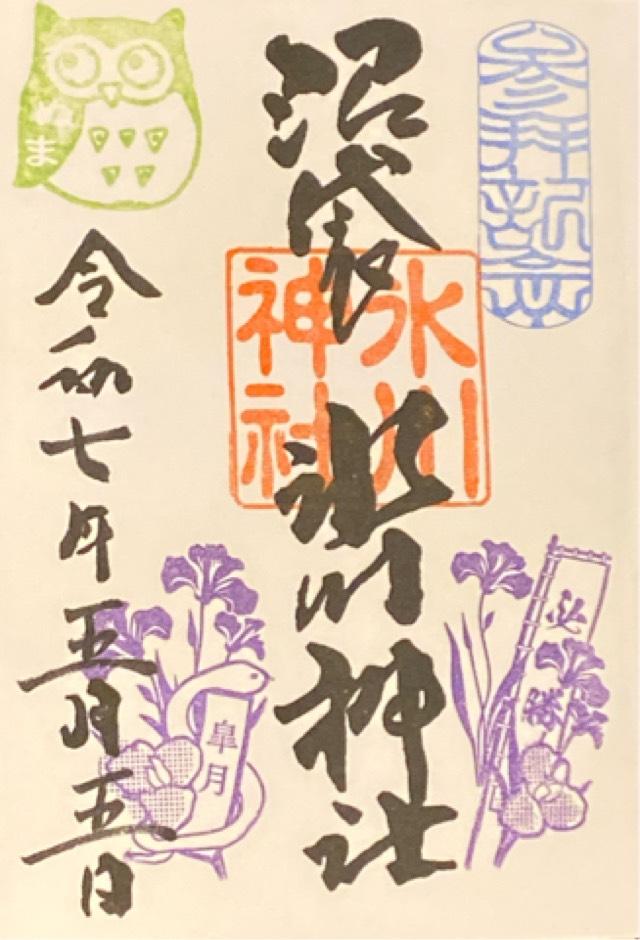 参拝記念
沼袋
氷川神社
氷川
神社
弘勝
皐月
ぬま
令和七年五月五日